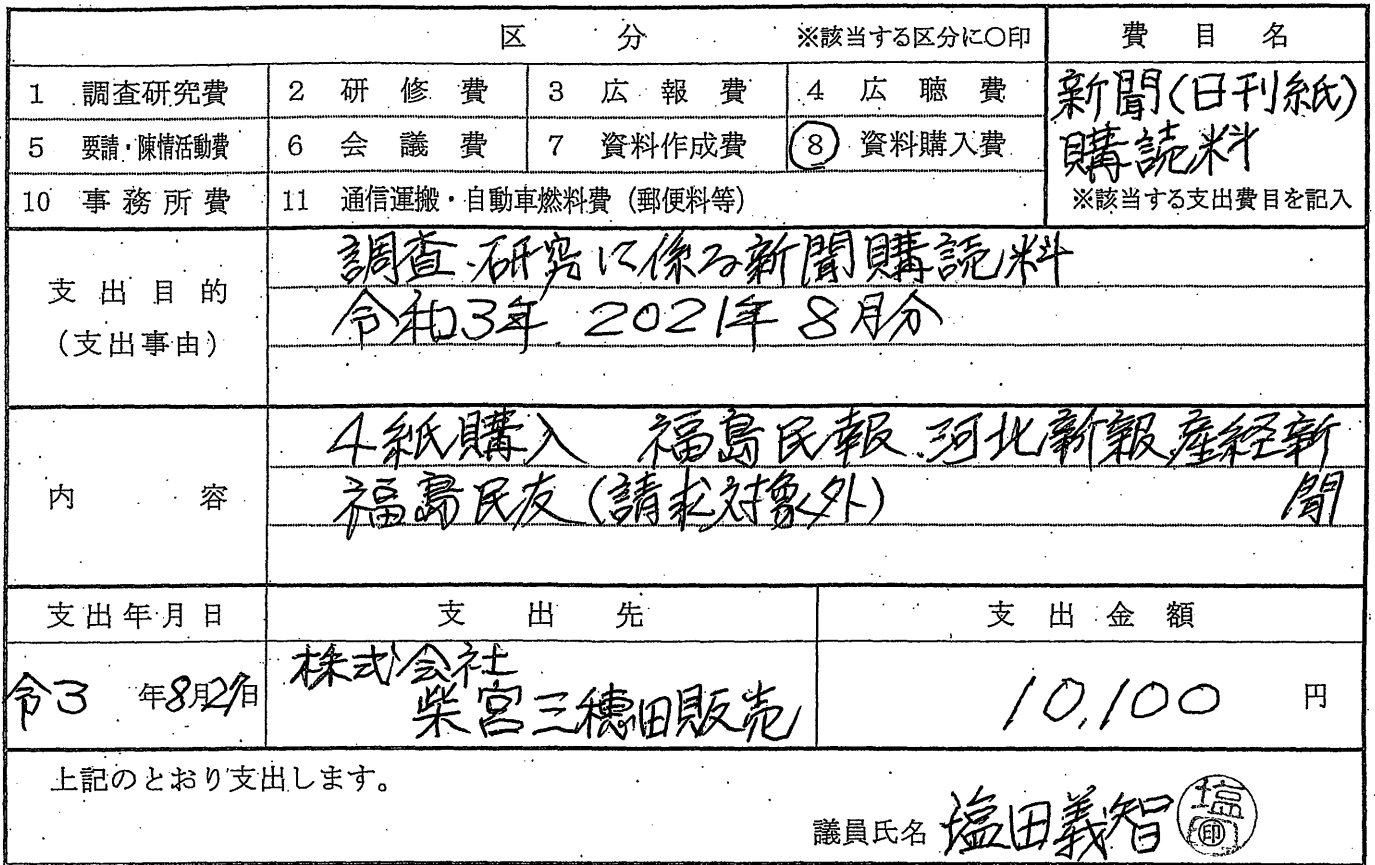 区 分 ※該当する区分に○印
費 目 名
1 調査研究費 2 研 修 費 3 広 報 費 4 広 聴 費
5 要請・陳情活動費 6 会 議 費 7 資料作成費 8 資料購入費
10 事 務 所 費 11 通信運搬・自動車燃料費（郵便料等）
新聞(日刊紙)
購読料
※該当する支出費目を記入
支 出 目 的
（支出事由）
調査、研究に係る新聞購読料
令和3年 2021年 8月分
内 容
4紙購入 福島民報、河北新報、産経新
聞
福島民友(請求対象外)
支出年月日 支 出 先 支 出 金 額
令3 年8月 日
株式会社
柴宮三穂田販売
10,100 円
上記のとおり支出します。
議員氏名 塩田義智 塩 印